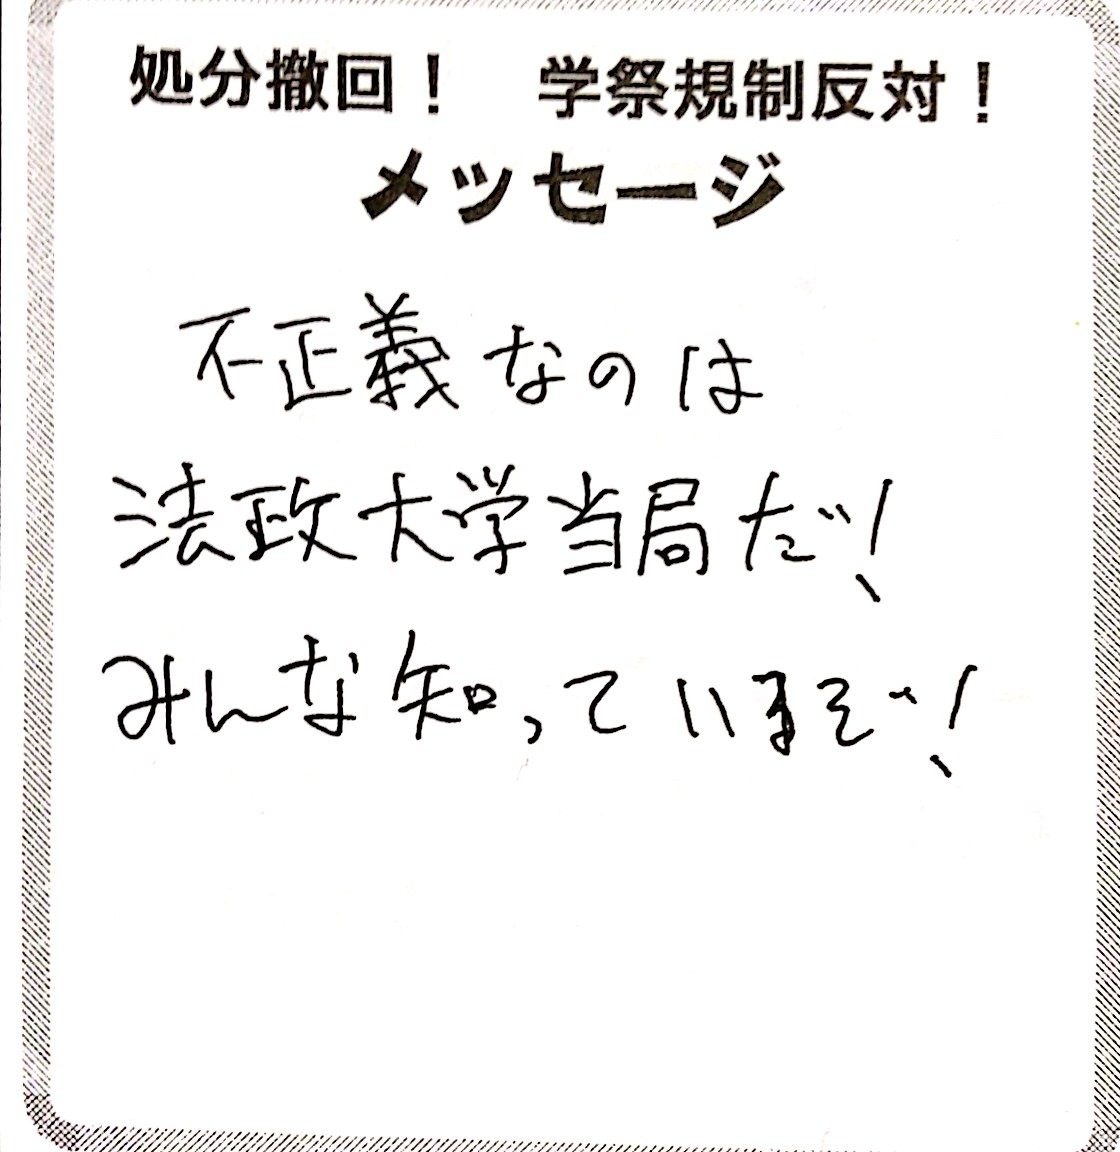 処分撤回！　学祭規制反対！
メッセージ
不正義なのは
法政大学当局だ！
みんな知っているぞ！